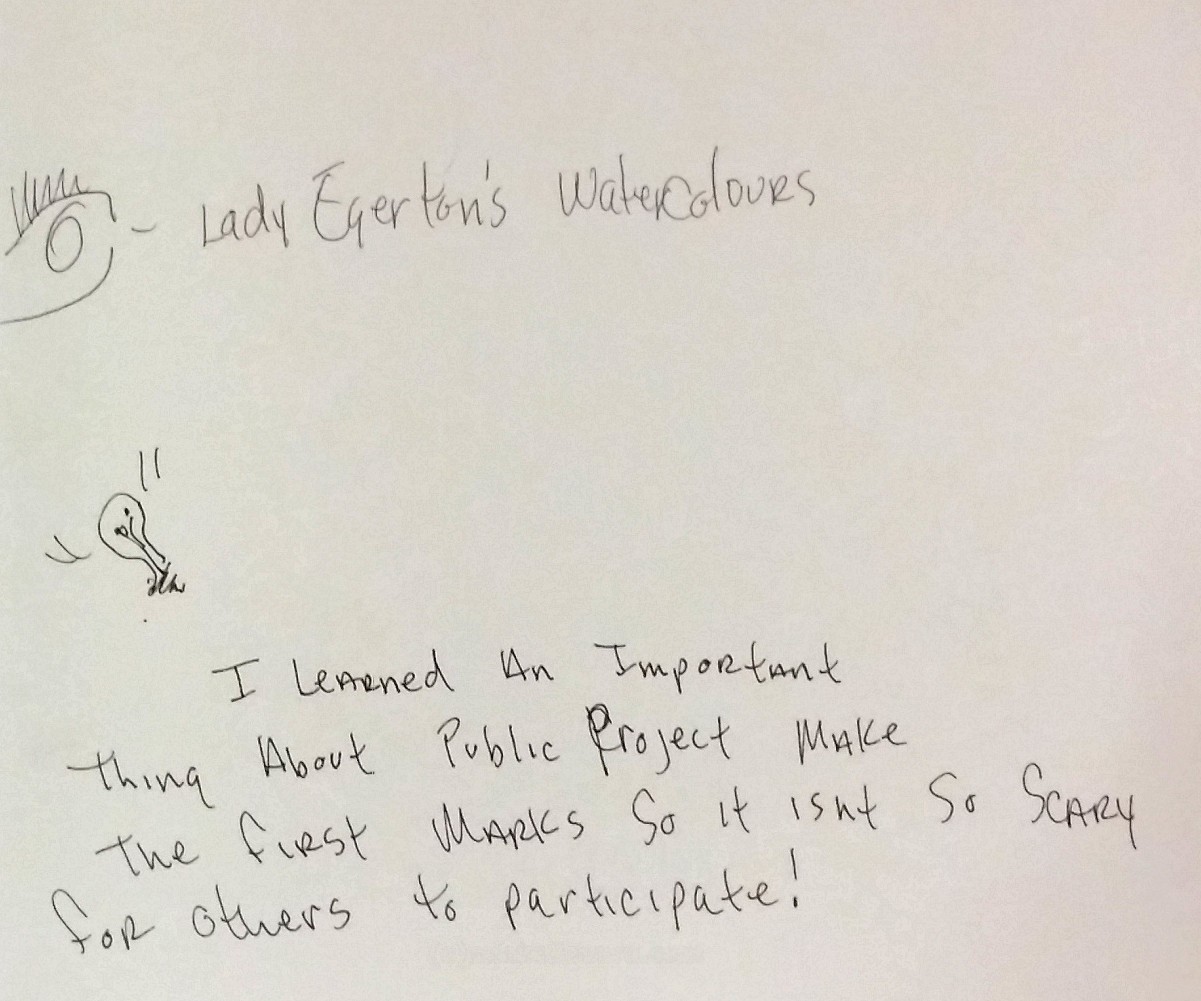 - Lady Egerton's Watercolours
I Learned An Important
thing About Public Project Make
the first Marks So it isnt So Scary
for others to participate!